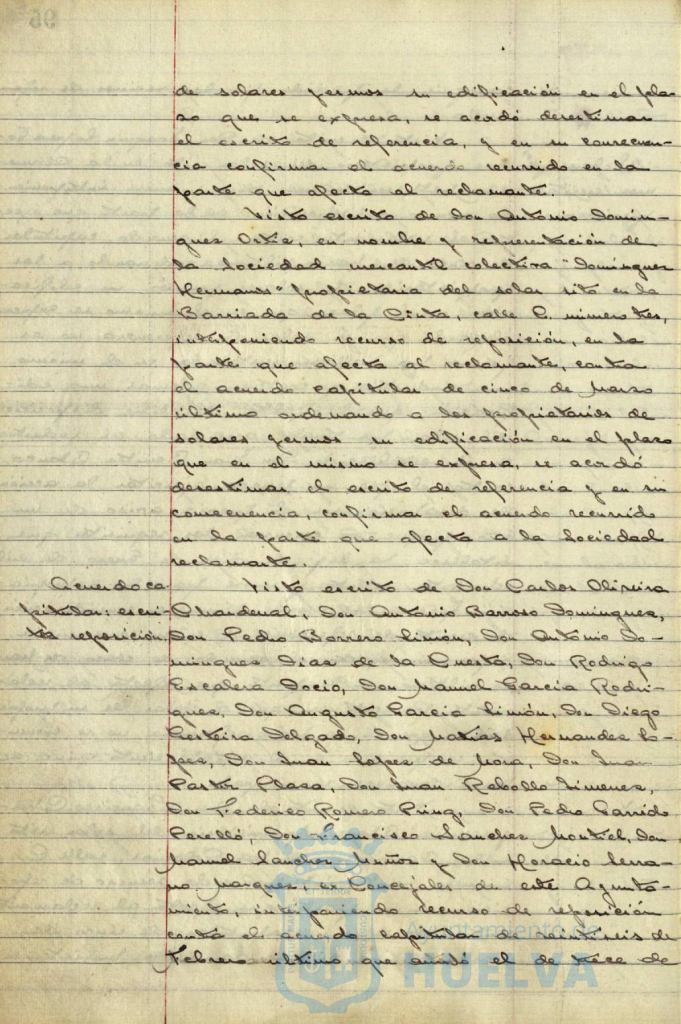 de solares yermos su edificación en el pla-
zo que se expresa, se acordó desestimar
el escrito de referencia, y en su consecuen-
cia confirmar el acuerdo recurrido en la
parte que afecta al reclamante.
Visto escrito de Don Antonio Domin-
guez Ortiz, en nombre y representación de
la Sociedad mercantil colectiva "Dominguez
Hermanos" propietaria del solar sito en la
Barriada de la Cinta, calle C. número tres,
interponiendo recurso de reposición, en la
parte que afecta al reclamante, contra
el acuerdo capitular de cinco de Marzo
último ordenando a los propietarios de
solares yermos su edificación en el plazo
que en el mismo se expresa, se acordó
desestimar el escrito de referencia y en su
consecuencia, confirmar el acuerdo recurrido
en la parte que afecta a la Sociedad
reclamante.
Acuerdo ca
pitular: escri-
tos reposición.
Visto escrito de Don Carlos Oliveira
Chardenal, Don Antonio Barroso Dominguez,
Don Pedro Borrero Limón, Don Antonio Do-
minguez Diaz de la Cuesta, Don Rodrigo
Escalera Docio, Don Manuel Garcia Rodri-
guez, Don Augusto Garcia Limón, Don Diego
Lesteira Delgado, Don Matias Hernandez Lo-
pez, Don Juan Lopez de Mora, Don Juan
Pastor Plaza, Don Juan Rebollo Jimenez,
Don Federico Romero Pring, Don Pedro Garrido
Perelló, Don Francisco Sanchez Montiel, Don
Manuel Sanchez Muñoz y Don Horacio Serra-
no Marquez, ex Concejales de este Ayunta-
miento, interponiendo recurso de reposición
contra el acuerdo capitular de veintiseis de
Febrero último que anuló el de trece de
Ayuntamiento de
HUELVA